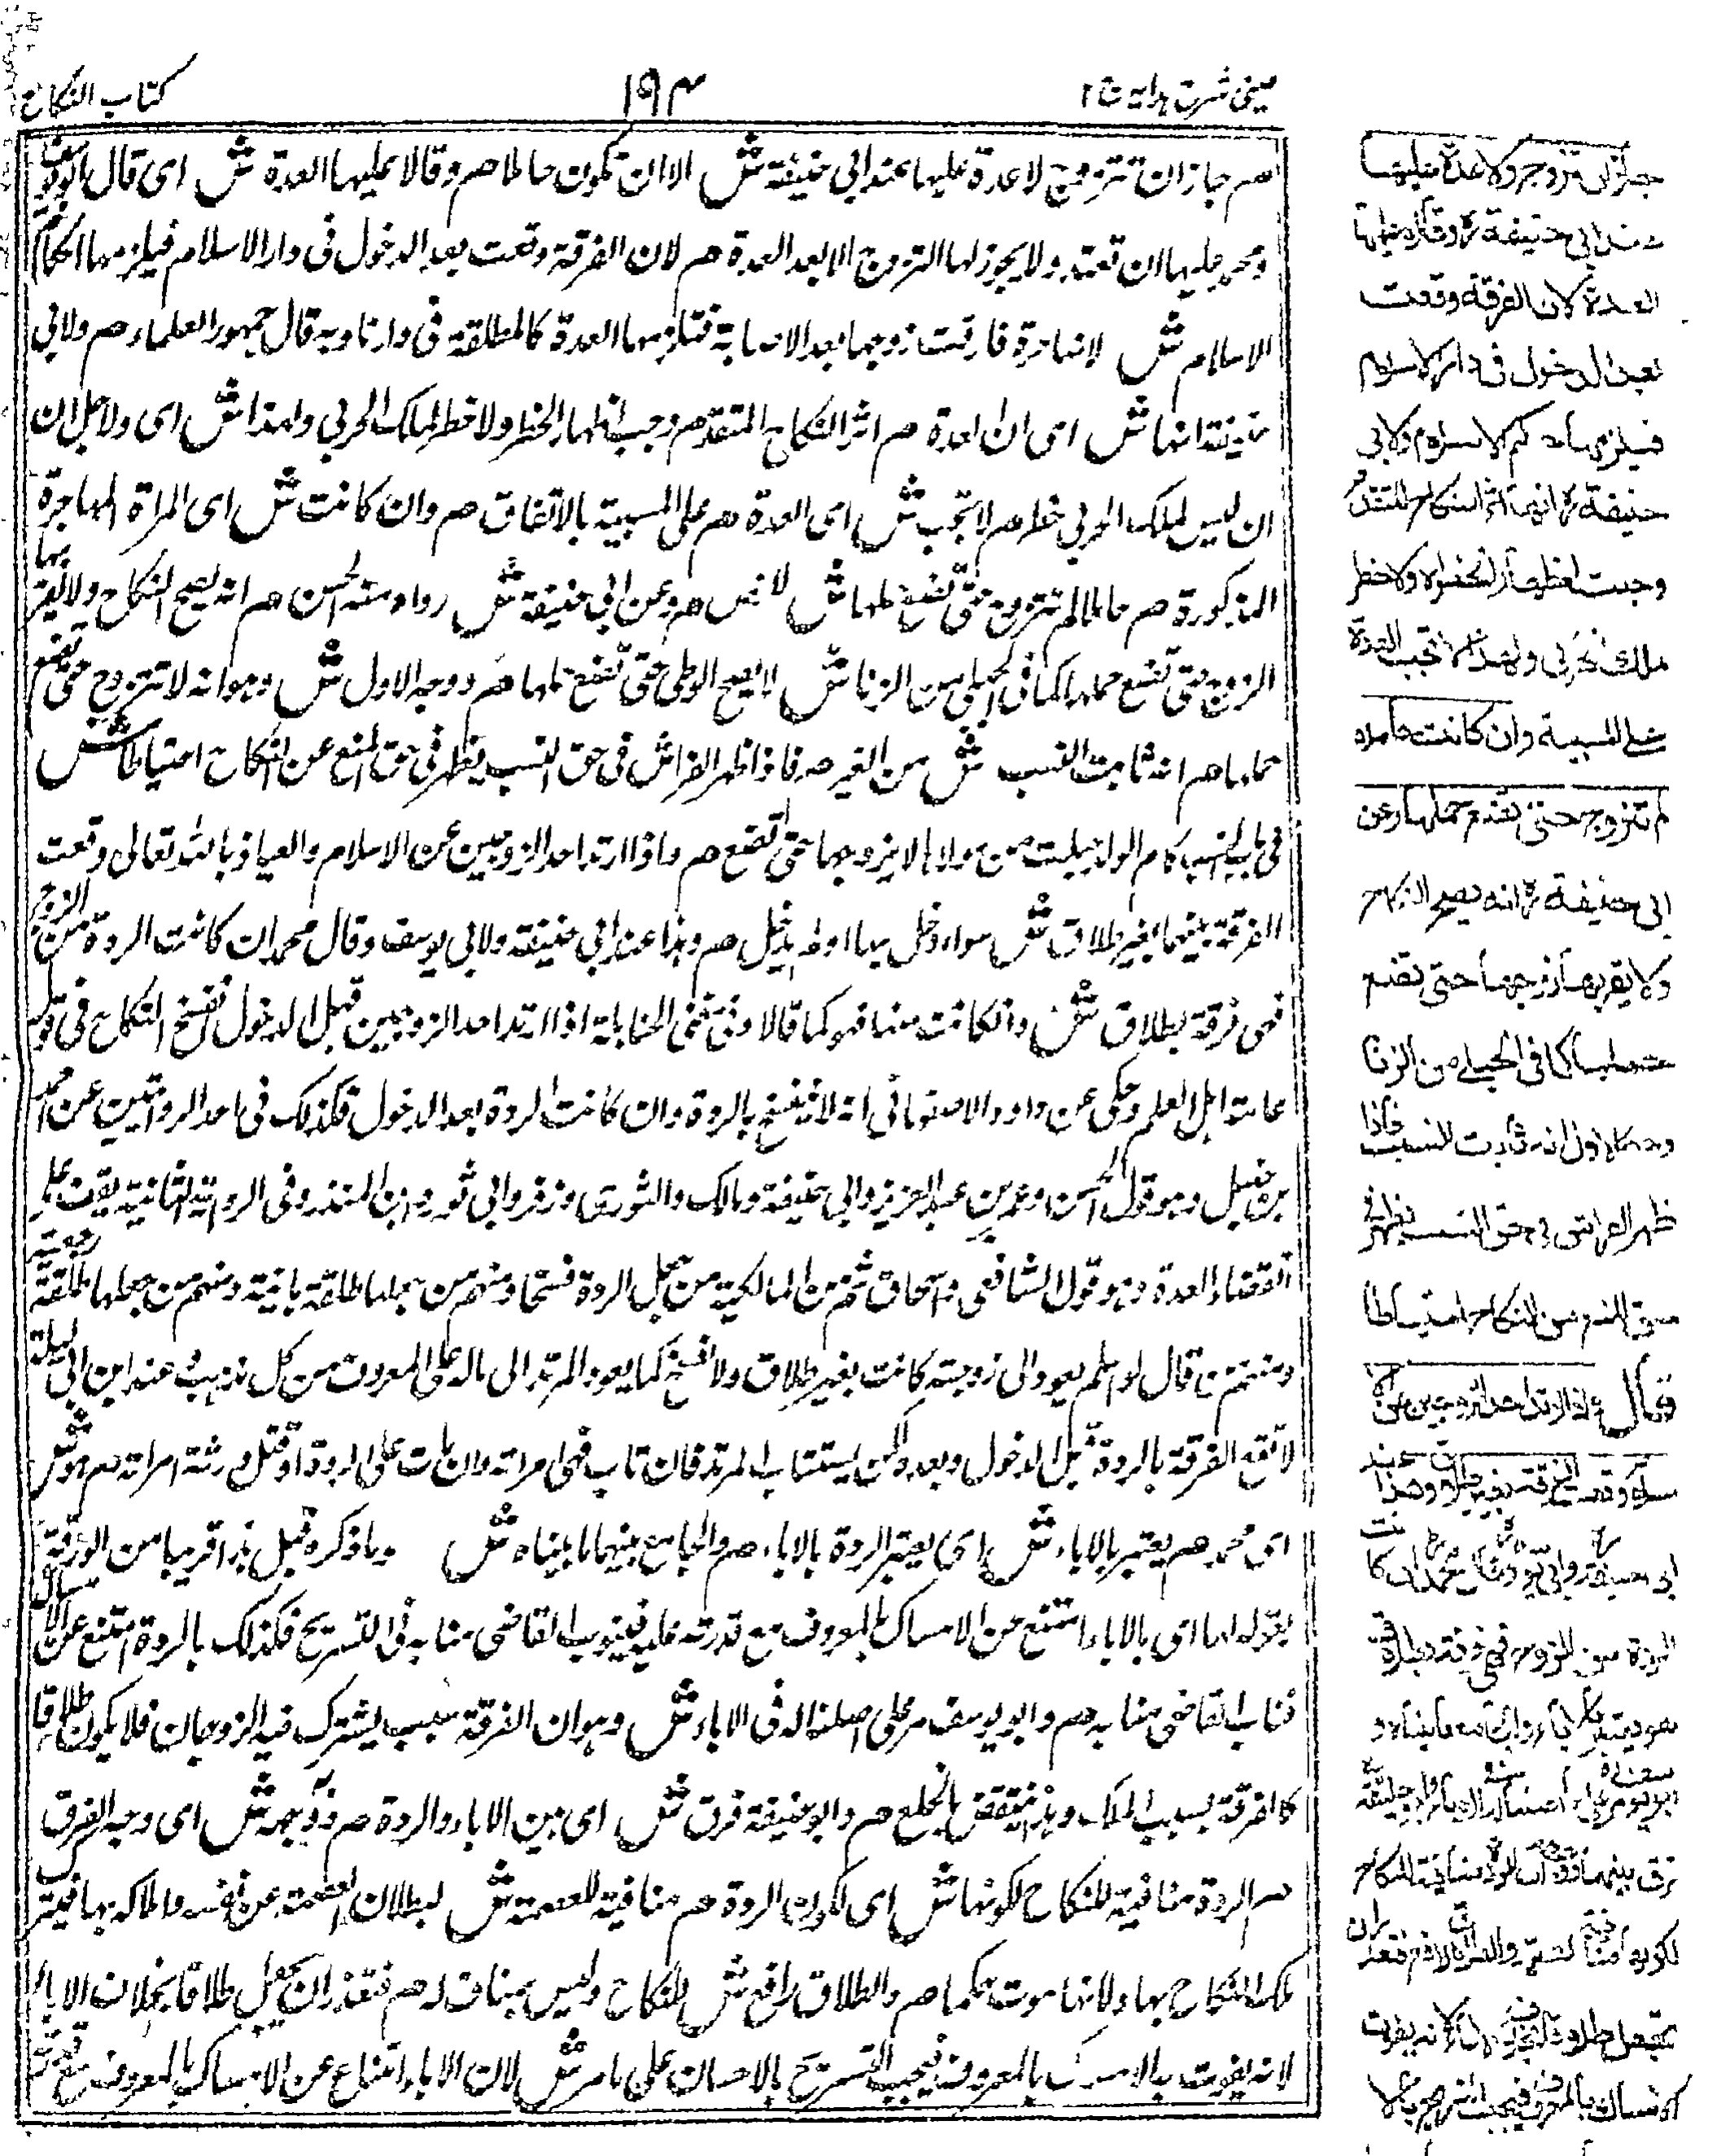 كتاب النكاح
١٩٣
عينى شرح هداية ج ٢
م جاز ان تتزوج لا عدة عليها عند ابي حنيفة ش الا ان تكون حاملا م وقالا عليها العدة ش اى قال ابو يوسف
ومحمد عليها ان تعتد ولا يجوز لها التزوج الا بعد العدة م لان الفرقة وقعت بعد الدخول فى دار الاسلام فيلزمها حكم
الاسلام ش لانها حرة فارقت زوجها بعد الاصابة فتلزمها العدة كالمطلقة فى دارنا وبه قال جمهور العلماء م ولابي
حنيفة انها ش اى ان العدة م اثر النكاح المتقدم وجبت اظهارا لخطره ولا خطر لملك الحربي ولهذا ش اى ولاجل ان
ان ليس لملك الحربي خطر م لا تجب ش اى العدة م على المسبية بالاتفاق م وان كانت ش اى المراة المهاجرة
المذكورة م حاملا لم تتزوج حتى تضع حملها ش م وعن ابي حنيفة ش رواه عنه الحسن م انه يصح النكاح ولا يقربها
الزوج حتى تضع حملها كما فى الحبلى من الزنا ش لا يصح الوطى حتى تضع حملها م وجه الاول ش وهو انه لا تتزوج حتى تضع
حملها م انه ثابت النسب ش من الغير م فاذا ظهر الفراش فى حق النسب يظهر فى حق المنع عن النكاح احتياطا ش
فى باب النسب كام الولد حبلت من مولاها لا يزوجها حتى تضع م واذا ارتد احد الزوجين عن الاسلام والعياذ بالله تعالى وقعت
الفرقة بينهما بغير طلاق ش سواء دخل بها او لم يدخل م وهذا عند ابي حنيفة وابي يوسف وقال محمد ان كانت الردة من الزوج
فهى فرقة بطلاق ش وان كانت منها فهو كما قالا وفى مغنى الحنابلة اذا ارتد احد الزوجين قبل الدخول انفسخ النكاح فى قول
عامة اهل العلم وحكى عن داود الاصفهانى انه لا ينفسخ بالردة وان كانت الردة بعد الدخول فكذلك فى احد الروايتين عن احمد
بن حنبل وهو قول الحسن وعمر بن عبد العزيز وابي حنيفة ومالك والثورى وزفر وابي ثور وابن المنذر وفى الرواية الثانية يقف على
انقضاء العدة وهو قول الشافعى واسحاق ثم من المالكية من جعل الردة فسخا ومنهم من جعلها طلقة باينة ومنهم من جعلها طلقة رجعية
ومنهم من قال لو اسلم يعود الى زوجته كانت بغير طلاق ولا فسخ كما يعود المرتد الى ماله على المعروف من كل مذهب وعند ابن ابي ليلى
لا تقع الفرقة بالردة قبل الدخول وبعده ولكن يستتاب المرتد فان تاب فهى امراته وان مات على الردة او قتل ورثته امراته م هو ش
اى محمد م يعتبره بالاباء ش اى يعتبر الردة بالاباء م والجامع بينهما ما بيناه ش وما ذكره قبل هذا قريبا من الورقة
بقوله لهما اى بالاباء امتنع عن الامساك بالمعروف مع قدرته عليه فينوب القاضى منابه فى التسريح فكذلك بالردة امتنع عن الامساك
فناب القاضى منابه م وابو يوسف مر على اصلنا له فى الاباء ش وهو ان الفرقة بسبب يشترك فيه الزوجان فلا يكون طلاقا
كالفرقة بسبب الملك وهذا ينتقض بالخلع م وابو حنيفة فرق ش اى بين الاباء والردة م ووجهه ش اى وجه الفرق
م ان الردة منافية للنكاح لكونها ش اى لكون الردة م منافية للعصمة ش لبطلان العصمة عن نفسه واملاكه بها
ملك النكاح بها ولانها موت حكما م والطلاق رافع ش للنكاح وليس بمناف له م فتعذر ان يجعل طلاقا بخلاف الاباء
لانه يفوت به الامساك بالمعروف فيجب التسريح بالاحسان على ما مر ش لان الاباء امتناع عن الامساك بالمعروف مع
جاز ان تتزوج ولا عدة عليها
عند ابي حنيفة رح وقالا عليها
العدة لان الفرقة وقعت
بعد الدخول فى دار الاسلام
فيلزمها حكم الاسلام ولابي
حنيفة رح انها اثر النكاح المتقدم
وجبت اظهارا لخطره ولا خطر
لملك الحربي ولهذا لا تجب العدة
على المسبية وان كانت حاملا
لم تتزوج حتى تضع حملها وعن
ابي حنيفة رح انه يصح النكاح
ولا يقربها زوجها حتى تضع
حملها كما فى الحبلى من الزنا
وجه الاول انه ثابت النسب فاذا
ظهر الفراش فى حق النسب يظهر فى
حق المنع من النكاح احتياطا
قال واذا ارتد احد الزوجين عن
الاسلام وقعت الفرقة بغير طلاق وهذا عند
ابي حنيفة وابي يوسف وقال محمد ان كانت
الردة من الزوج فهى فرقة بطلاق
هو يعتبره بالاباء والجامع ما بيناه و
ابو يوسف مر على اصلنا له فى الاباء وابو حنيفة
فرق بينهما ووجهه ان الردة منافية للنكاح
لكونها منافية للعصمة والطلاق رافع فتعذر ان
يجعل طلاقا بخلاف الاباء لانه يفوت
الامساك بالمعروف فيجب التسريح بالا